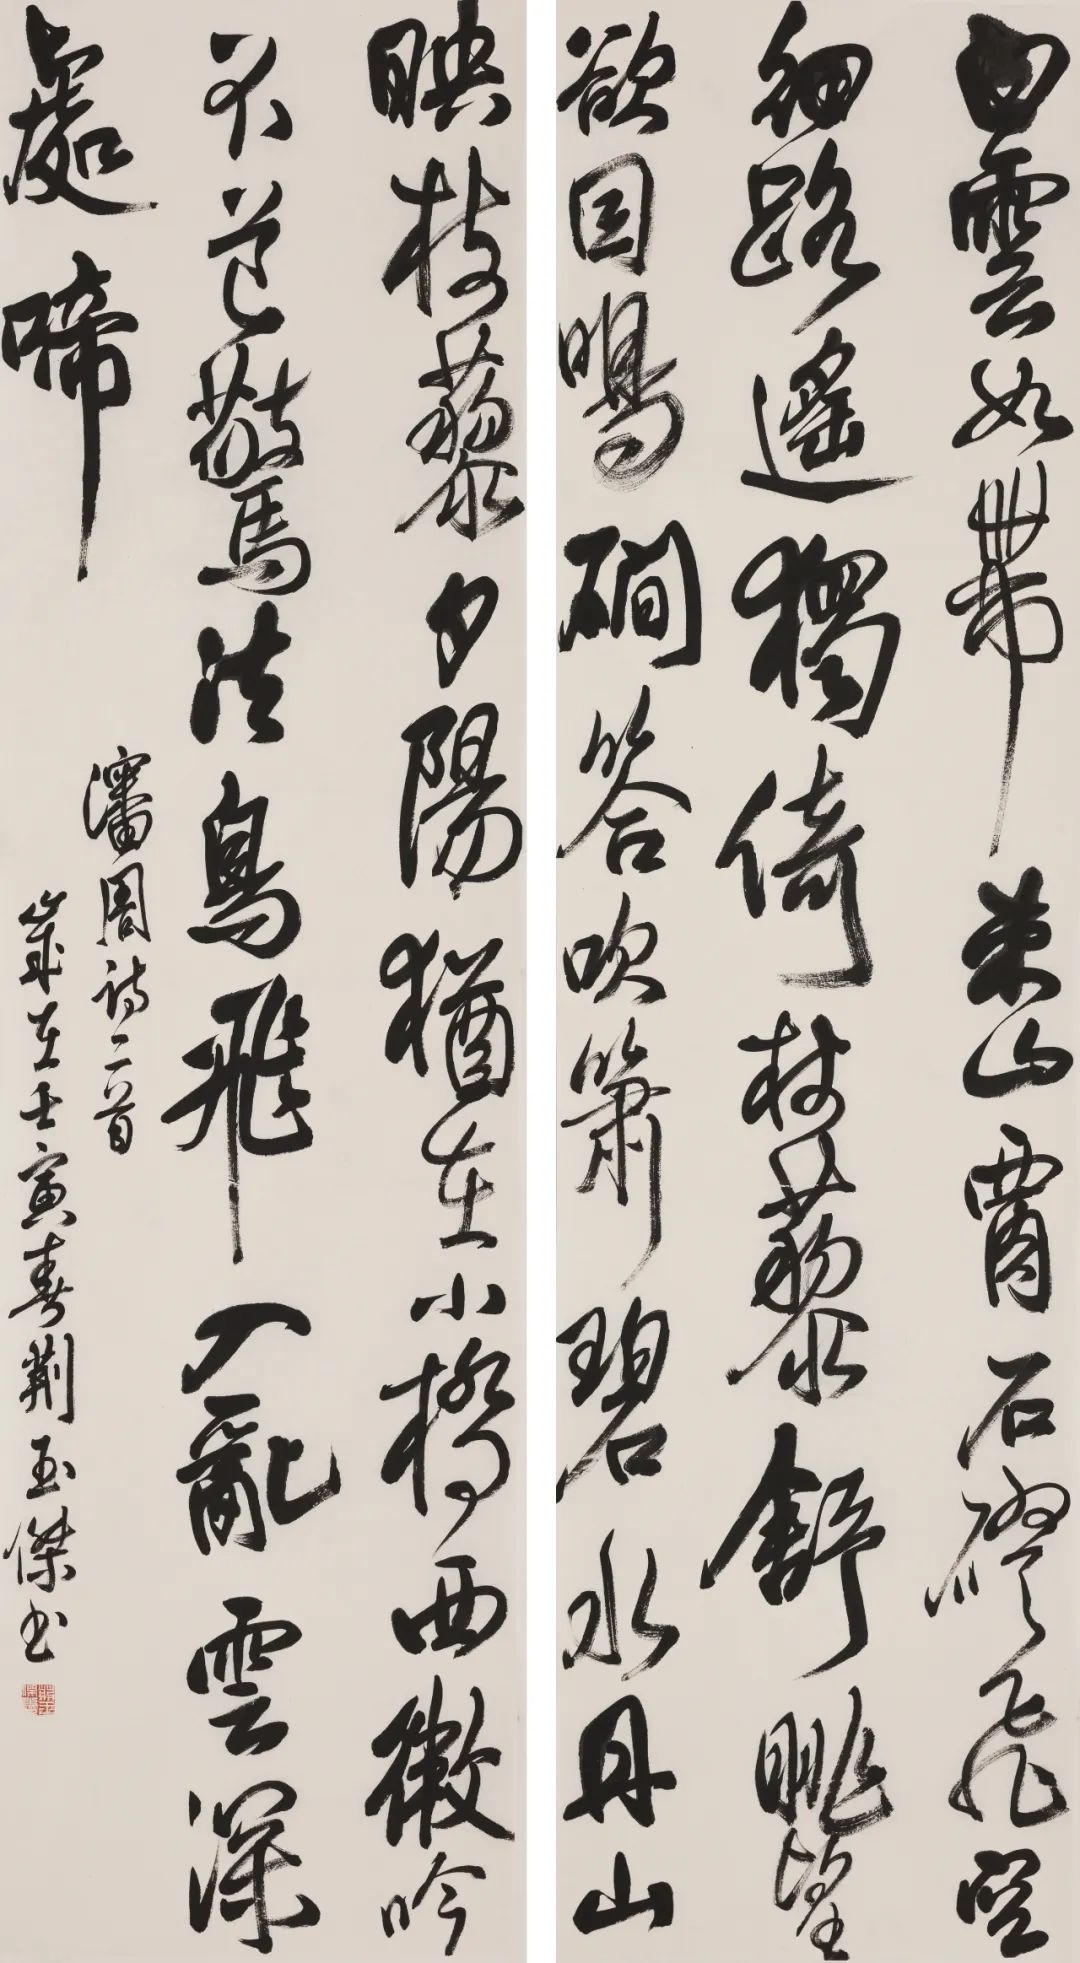 白雲如帶束山腰石磴飛空
細路遙獨倚杖藜舒眺望
欲因鳴磵答吹簫碧水丹山
映杖藜夕陽猶在小橋西微吟
不道驚溪鳥飛入亂雲深
處啼
瀋周詩二首
歲在壬寅春荊玉傑書